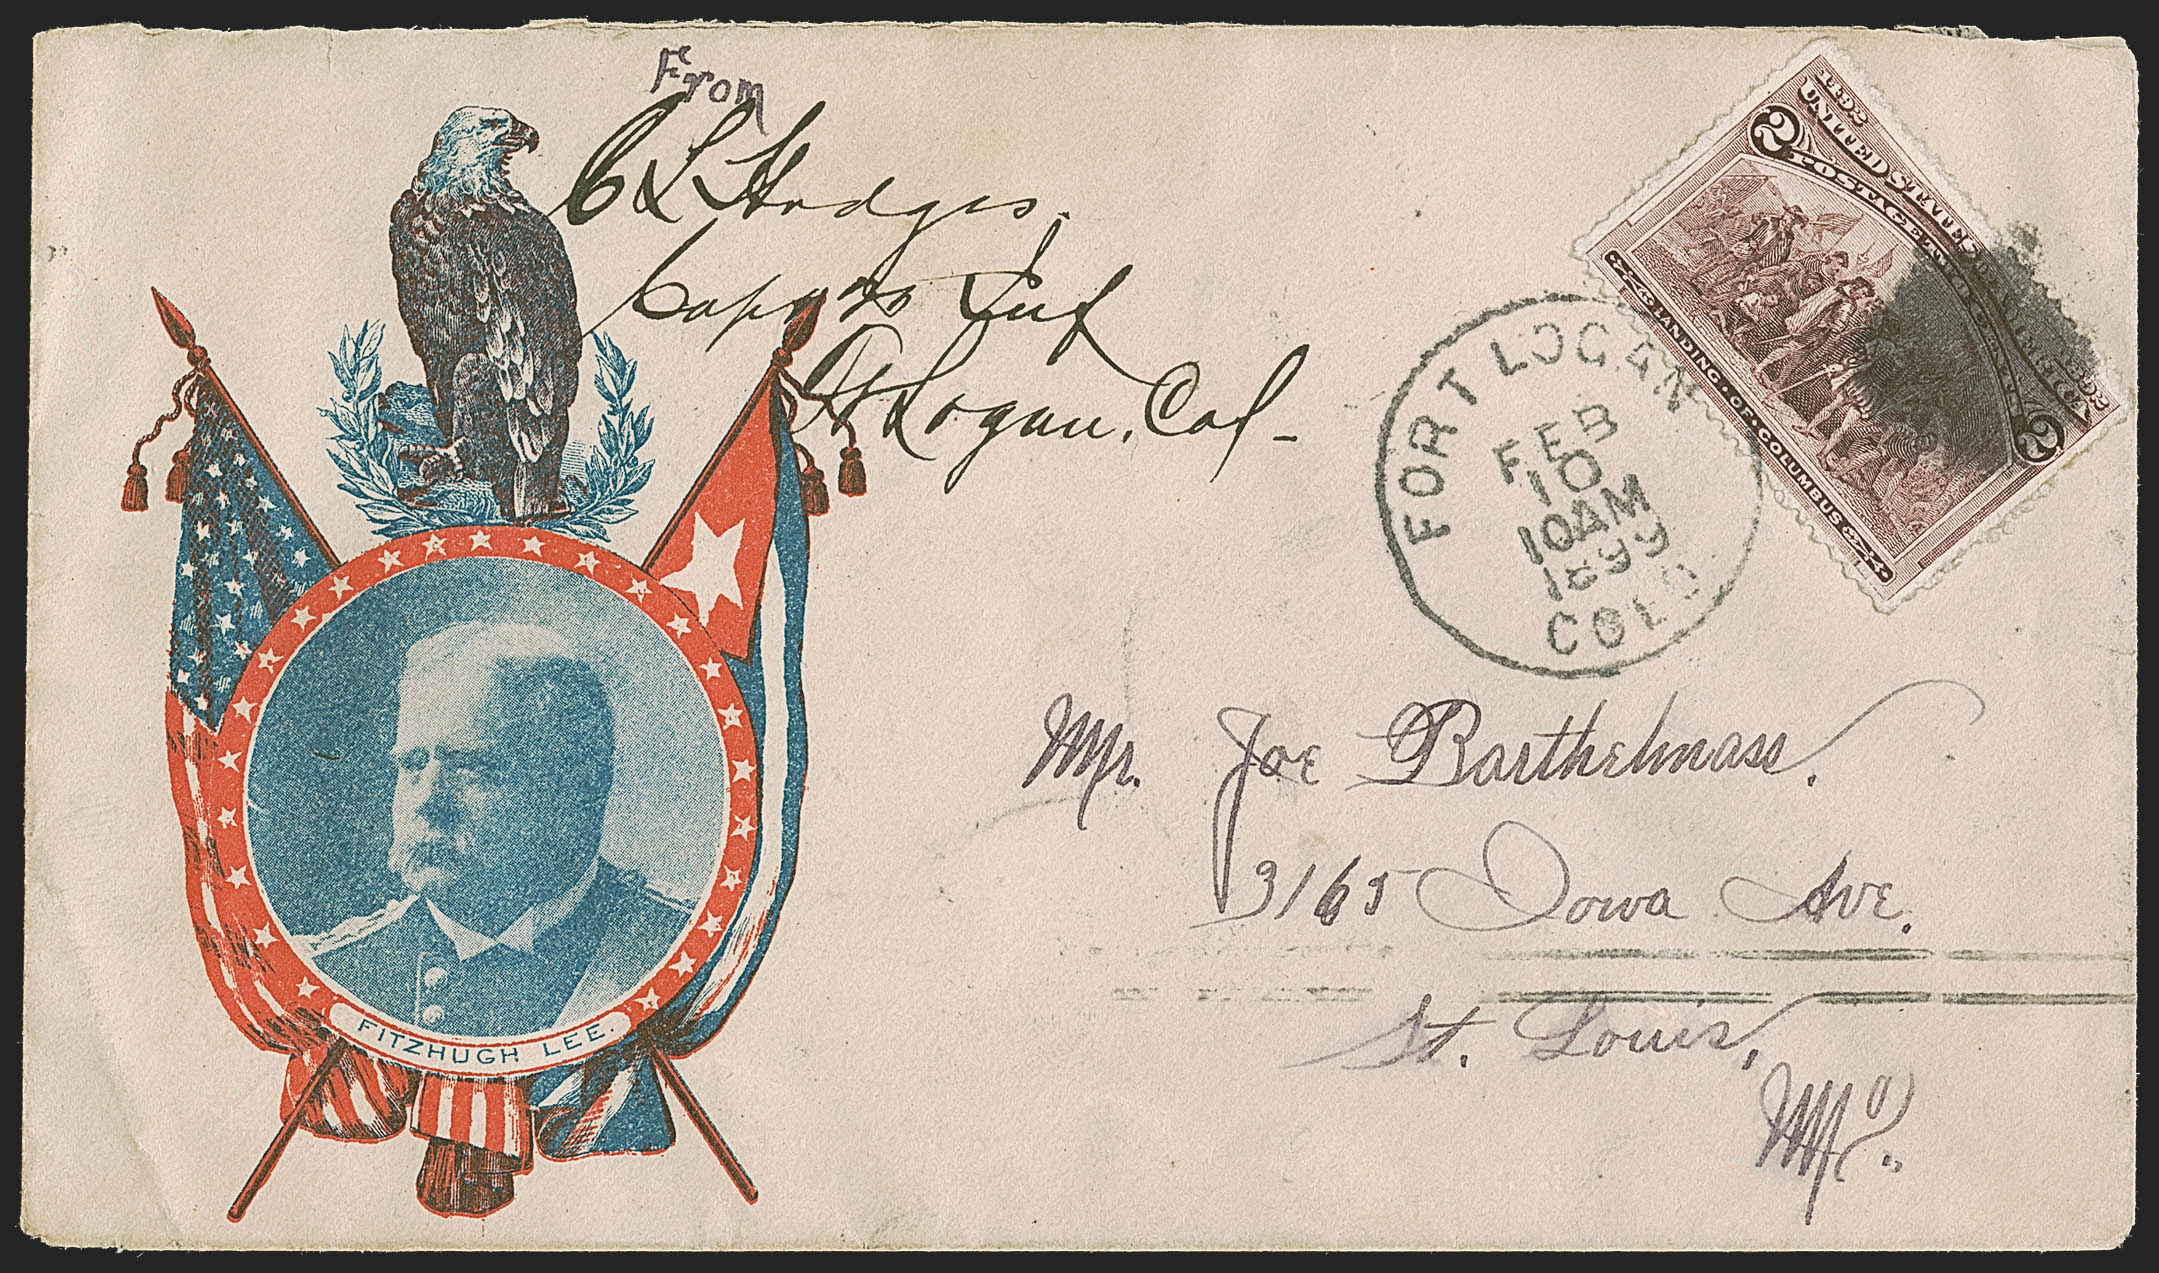 From
C L Hodges.
Capt Inf
Ft Logan, Col-
UNITED STATES OF AMERICA
2 POSTAGE TWO CENTS 2
LANDING · OF · COLUMBUS
FORT LOGAN
FEB
10
10 AM
1899
COLO
Mr. Joe Barthelmass.
3165 Iowa Ave.
St. Louis,
Mo.
FITZHUGH LEE.